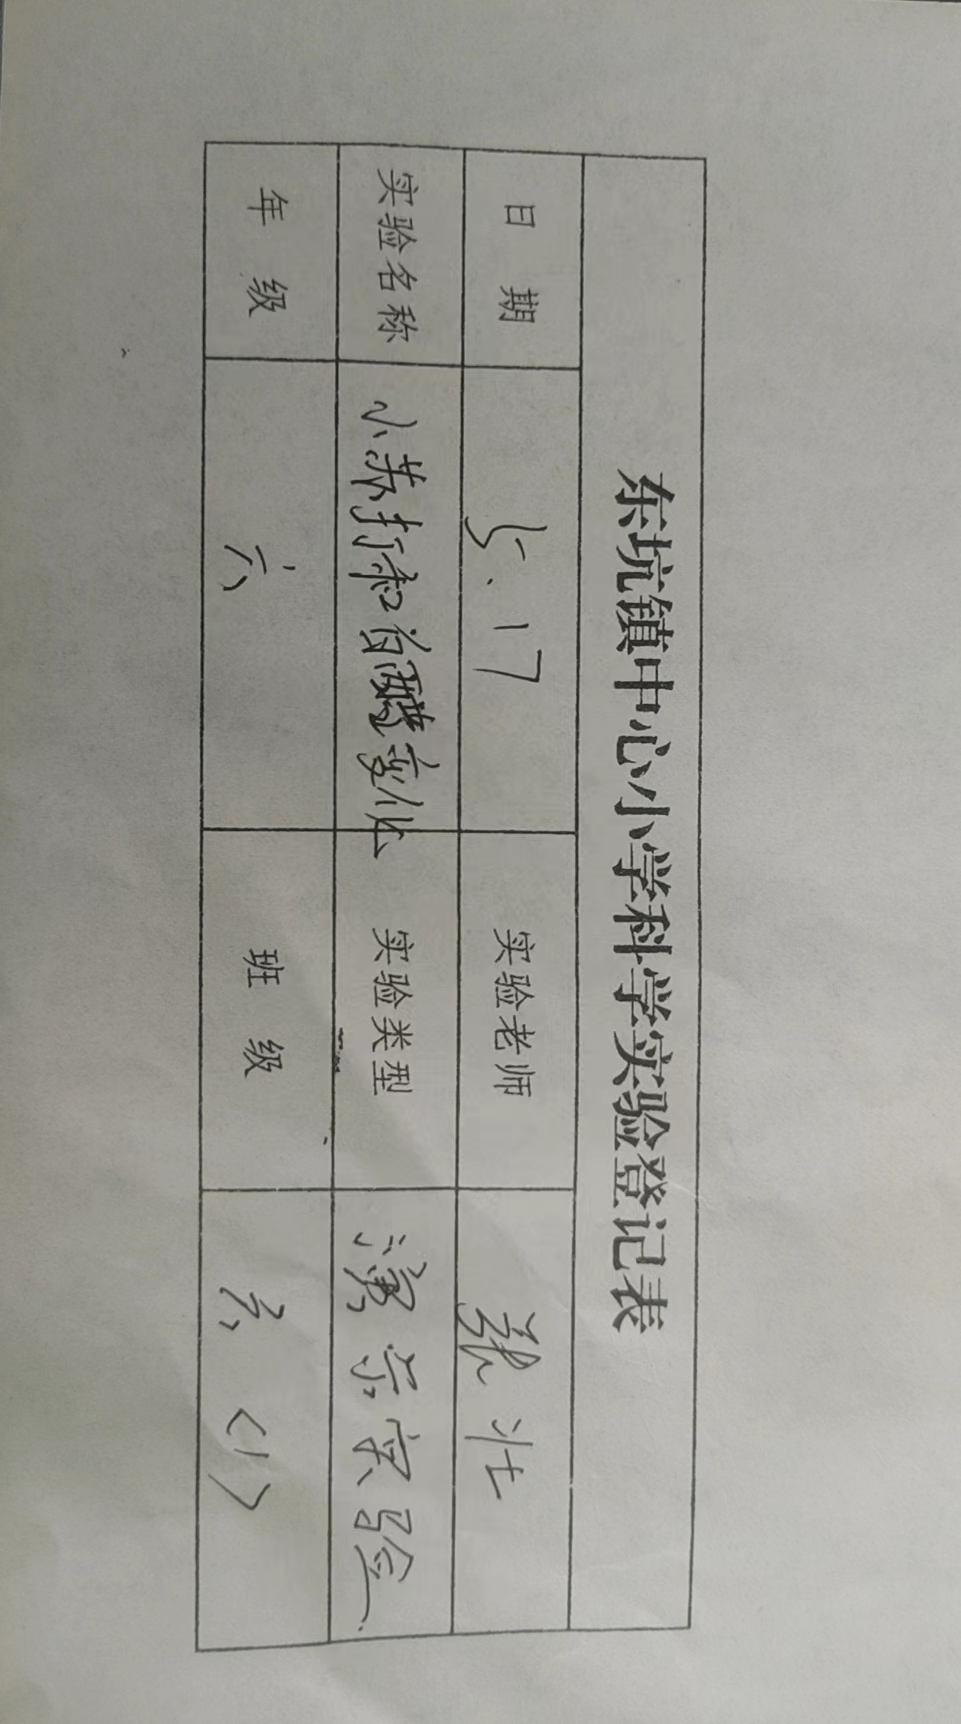 东坑镇中心小学科学实验登记表
日期 5.17 实验老师 张壮
实验名称 小苏打和白醋变化 实验类型 演示实验
年级 六 班级 六(1)